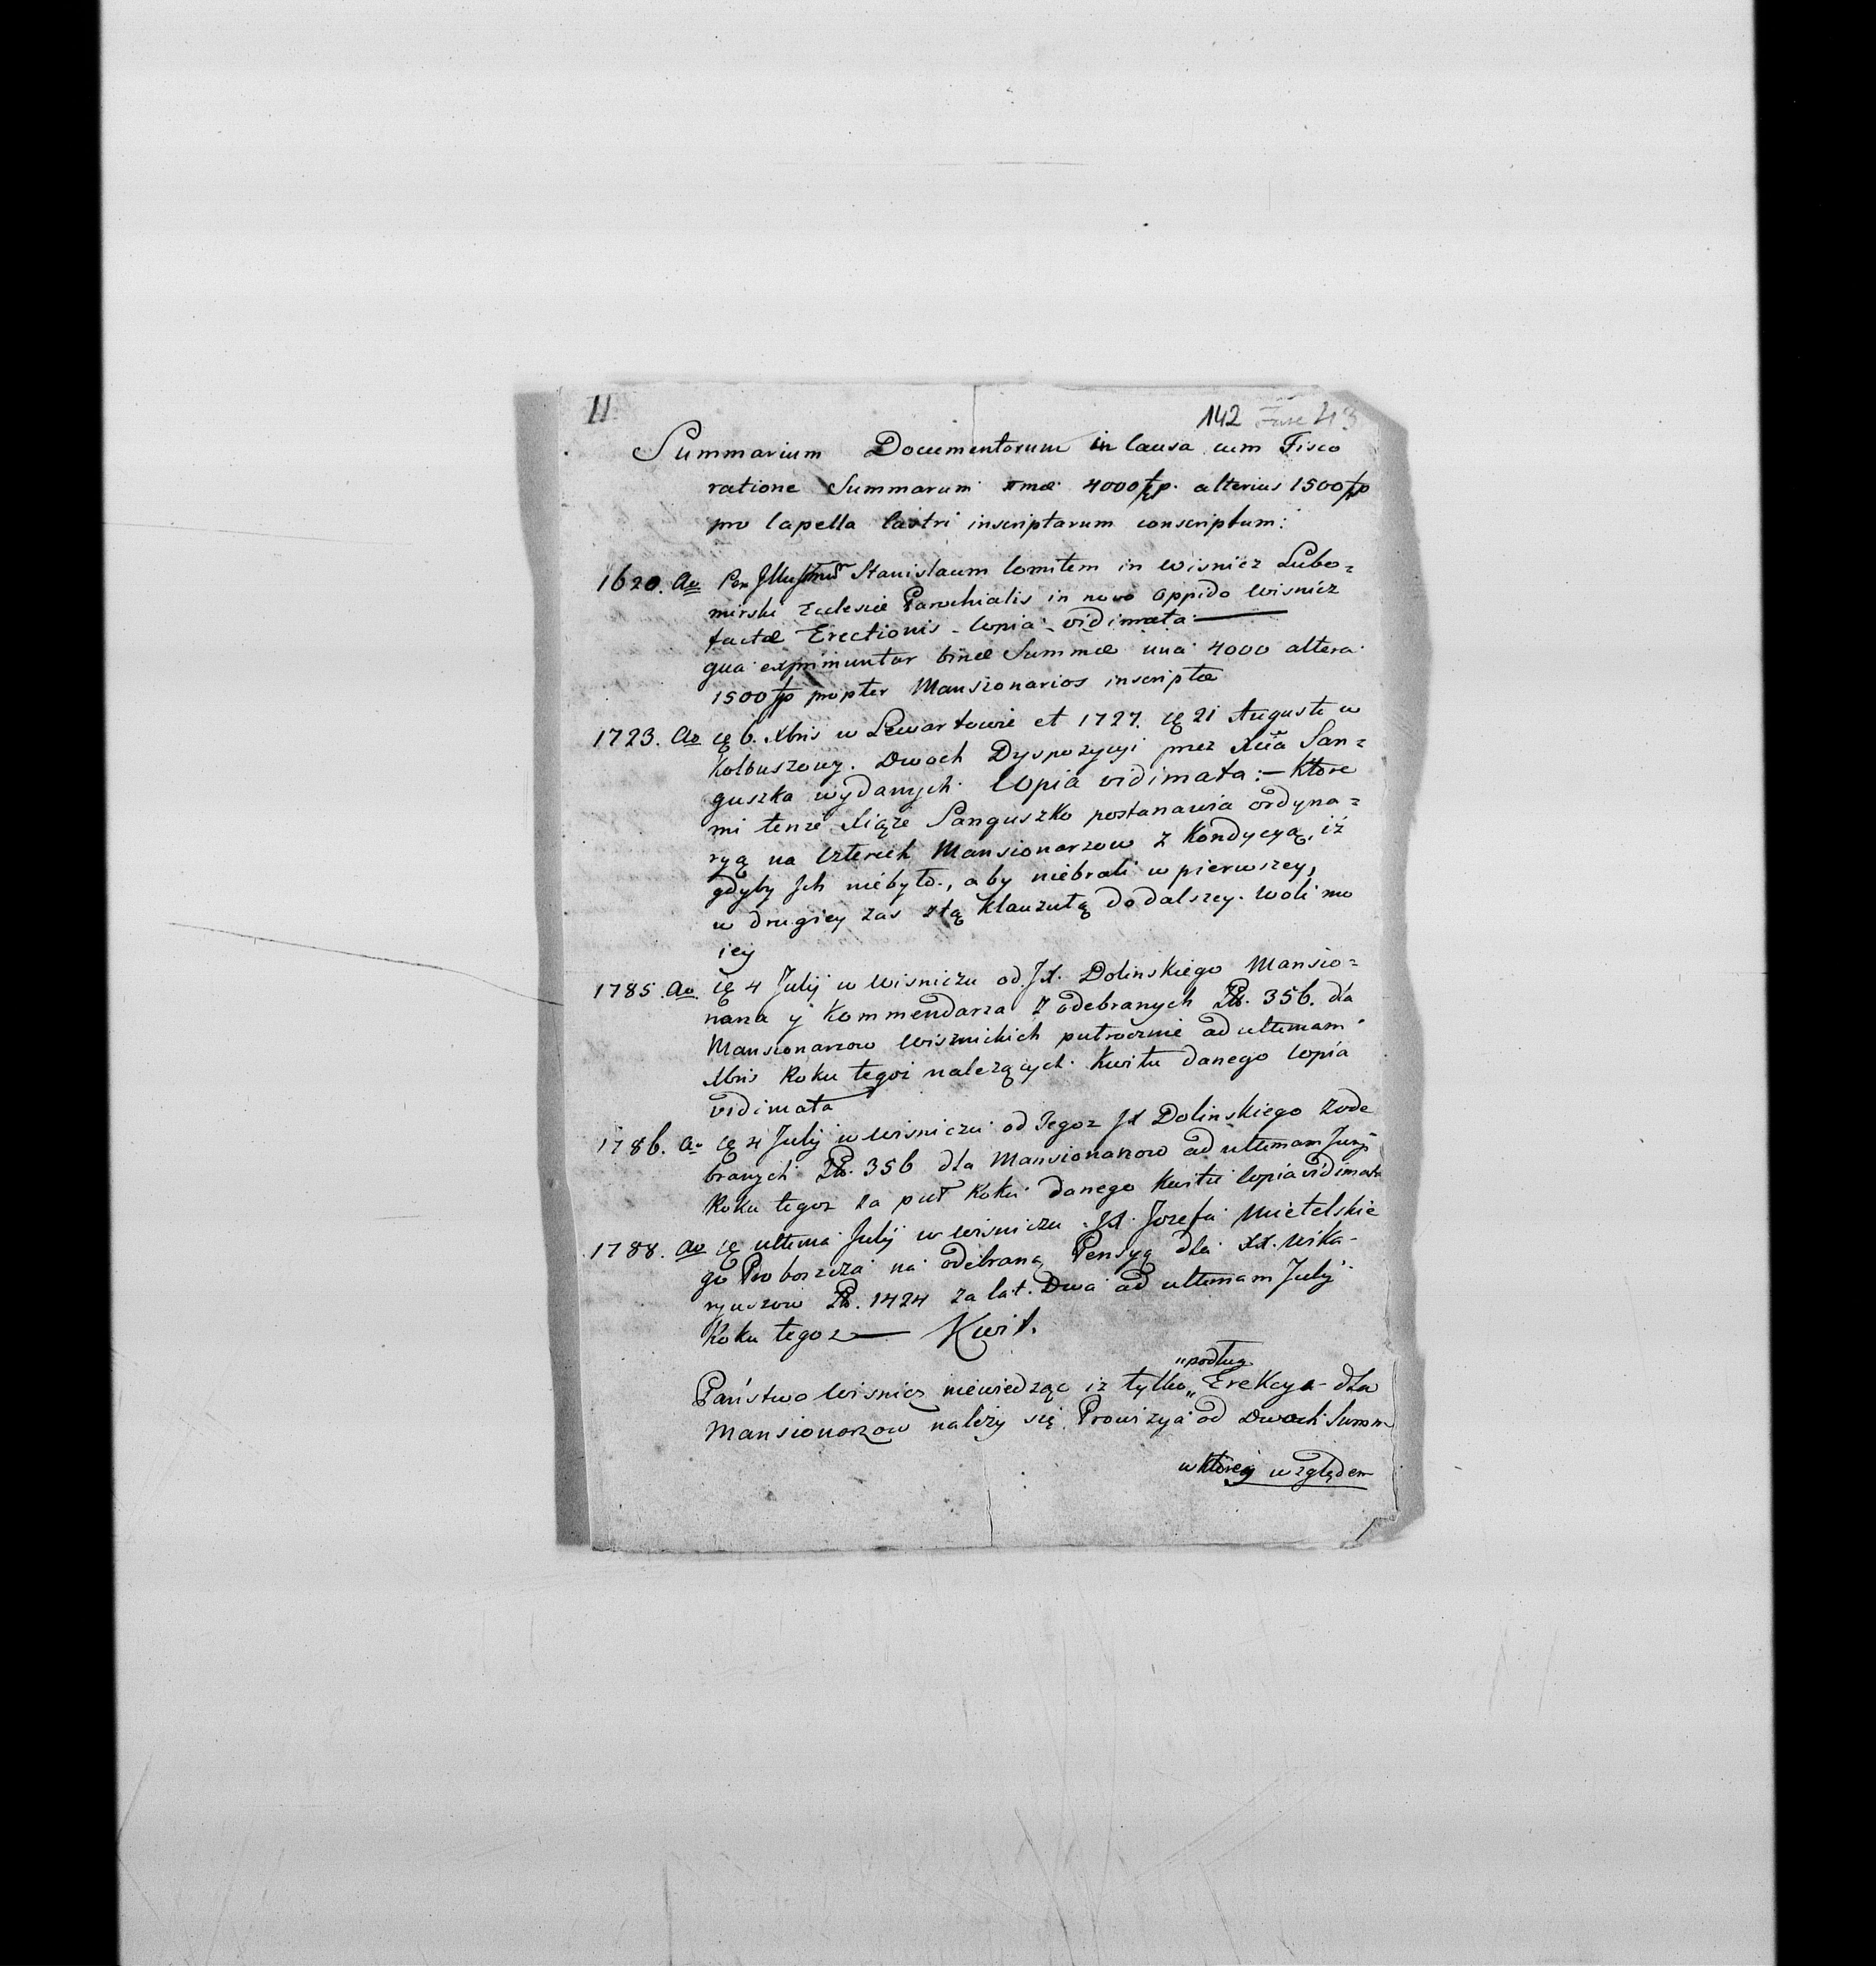 11.
142 Fasc 43
Summarium Documentorum in Causa cum Fisco
ratione Summarum 1mæ 4000 fp. alterius 1500 fp
pro Capella Castri inscriptarum conscriptum:
1620. Ao Per Stanislaum Comitem in Wisnicz Lubo=
mirski Eclesiæ Parochialis in novo Oppido Wisnicz
factæ Erectionis Copia vidimata
qua exprimuntur binæ Summæ una 4000 altera
1500 fp propter Mansionarios inscriptæ
1723. Ao 6. Xbris w Lewartowie et 1727. 21 Augusti w
Kolbuszowy. Dwoch Dyspozycyi przez Xcia San=
guszka wydanych Copia vidimata:— Ktore
mi tenze Xiąze Sanguszko postanawia ordyna=
ryą na Czterech Mansionarzow z Kondycyą, iż
gdyby Ich niebyło, aby niebrali w pierwszey,
w drugiey zas ztą Klauzulą do dalszey woli mo
iey
1785. Ao 4 July w Wisniczu od JX. Dolinskiego Mansio=
narza y Kommendarza Z odebranych Zł. 356. dla
Mansionarzow Wisznickich putrocznie ad ultimam
Xbris Roku tegoż należących Kwitu danego Copia
vidimata
1786. Ao 4 July w Wisniczu od Tegoz JX Dolinskiego Zode
branych Zł. 356 dla Mansionarzow ad ultimam Junij
Roku tegoz za puł Roku danego Kwitu Copia vidimata
1788. Ao ultima July w Wisniczu JX. Jozefa Mietelskie
go Proboszcza na odebraną Pensyą dla XX. Wika-
ryuszow Zł. 1424 za lat. Dwa ad ultimam July
Roku tegoz — Kwit.
"podług
Państwo Wisnicz niewiedząc iz tylko" Erekcya dla
Mansionarzow należy się Prowizya od Dwoch Summ
w Ktorey względem